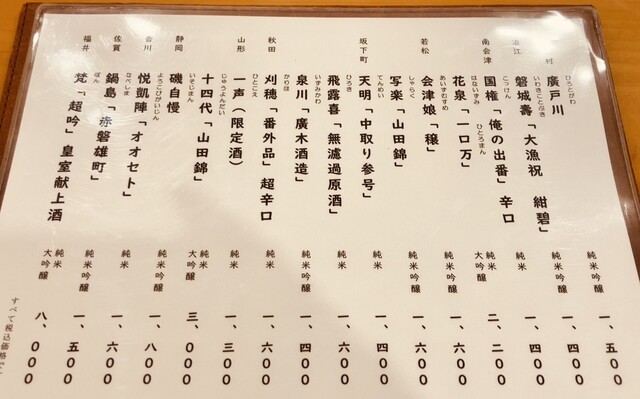 村 廣戸川 ひろとがわ 純米吟醸 一、五〇〇
浪江 磐城壽「大漁祝 紺碧」 いわきことぶき 純米吟醸 一、四〇〇
南会津 国権「俺の出番」辛口 こっけん 純米 一、四〇〇
花泉「一口万」 はないずみ ひとろまん 純米大吟醸 二、二〇〇
若松 会津娘「穣」 あいづむすめ 純米吟醸 一、六〇〇
写楽「山田錦」 しゃらく 純米吟醸 一、四〇〇
坂下町 天明「中取り参号」 てんめい 純米 一、四〇〇
飛露喜「無濾過原酒」 ひろき 純米 一、六〇〇
泉川「廣木酒造」 いずみかわ 純米吟醸 一、四〇〇
秋田 刈穂「番外品」超辛口 かりほ 純米 一、六〇〇
山形 一声（限定酒） ひとこえ 純米 一、三〇〇
十四代「山田錦」 じゅうよんだい 純米大吟醸 三、〇〇〇
静岡 磯自慢 いそじまん 純米吟醸 一、八〇〇
香川 悦凱陣「オオセト」 よろこびがいじん 純米 一、六〇〇
佐賀 鍋島「赤磐雄町」 なべしま 純米吟醸 一、五〇〇
福井 梵「超吟」皇室献上酒 ぼん 純米大吟醸 八、〇〇〇
すべて税込価格